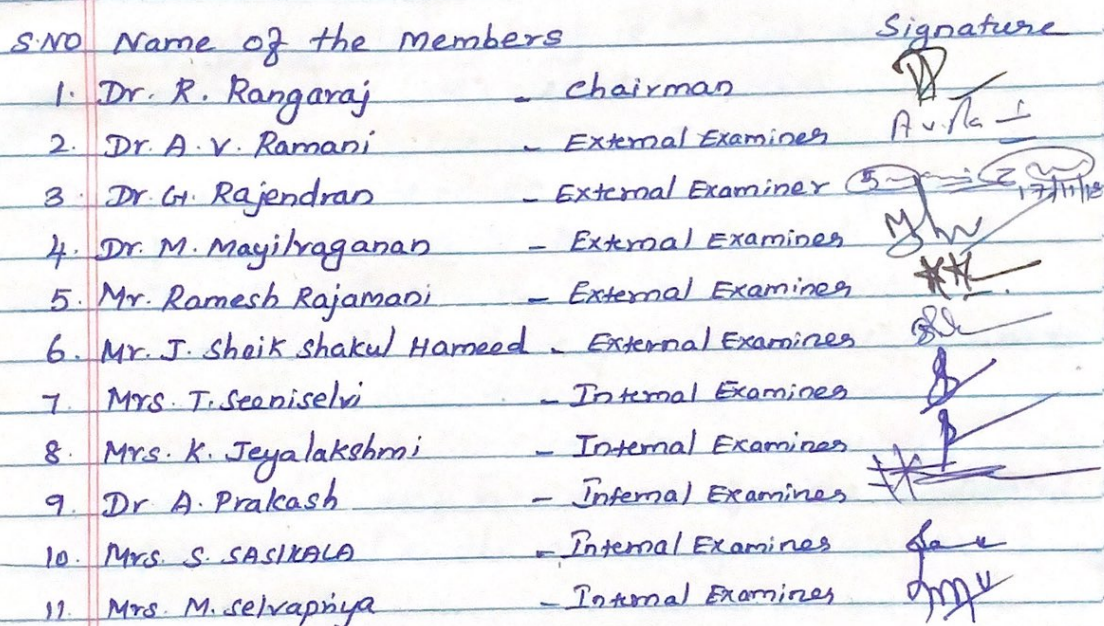 S.NO Name of the members Signature
1. Dr. R. Rangaraj - Chairman
2. Dr. A. V. Ramani - External Examiner
3. Dr. G. Rajendran - External Examiner 17/11/18
4. Dr. M. Mayilvaganan - External Examiner
5. Mr. Ramesh Rajamani - External Examiner
6. Mr. J. Sheik Shakul Hameed - External Examiner
7. Mrs. T. Seeniselvi - Internal Examiner
8. Mrs. K. Jeyalakshmi - Internal Examiner
9. Dr A. Prakash - Internal Examiner
10. Mrs. S. SASIKALA - Internal Examiner
11. Mrs. M. Selvapriya - Internal Examiner